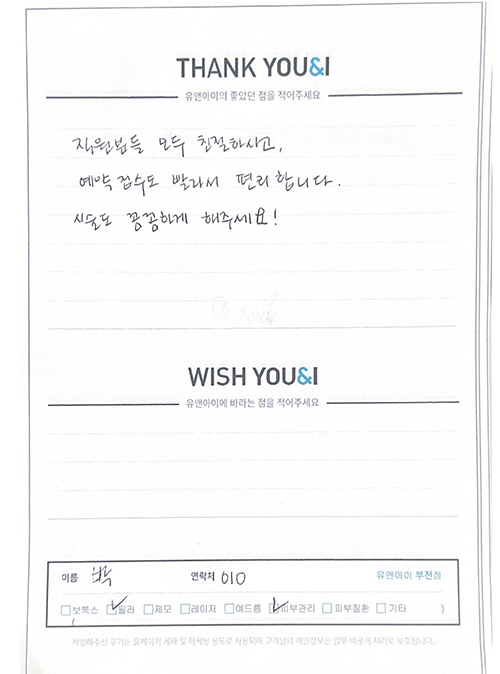 THANK YOU&I
유앤아이의 좋았던 점을 적어주세요
직원분들 모두 친절하시고,
예약 접수도 빨라서 편리합니다.
시술도 꼼꼼하게 해주세요!
WISH YOU&I
유앤아이에 바라는 점을 적어주세요
이름 박 연락처 010 유앤아이 부천점
보톡스 필러 제모 레이저 여드름 피부관리 피부질환 기타 )
(
작성해주신 후기는 홈페이지 게재 및 마케팅 용도로 사용되며 고객님의 개인정보는 일부 비공개 처리로 보호됩니다.